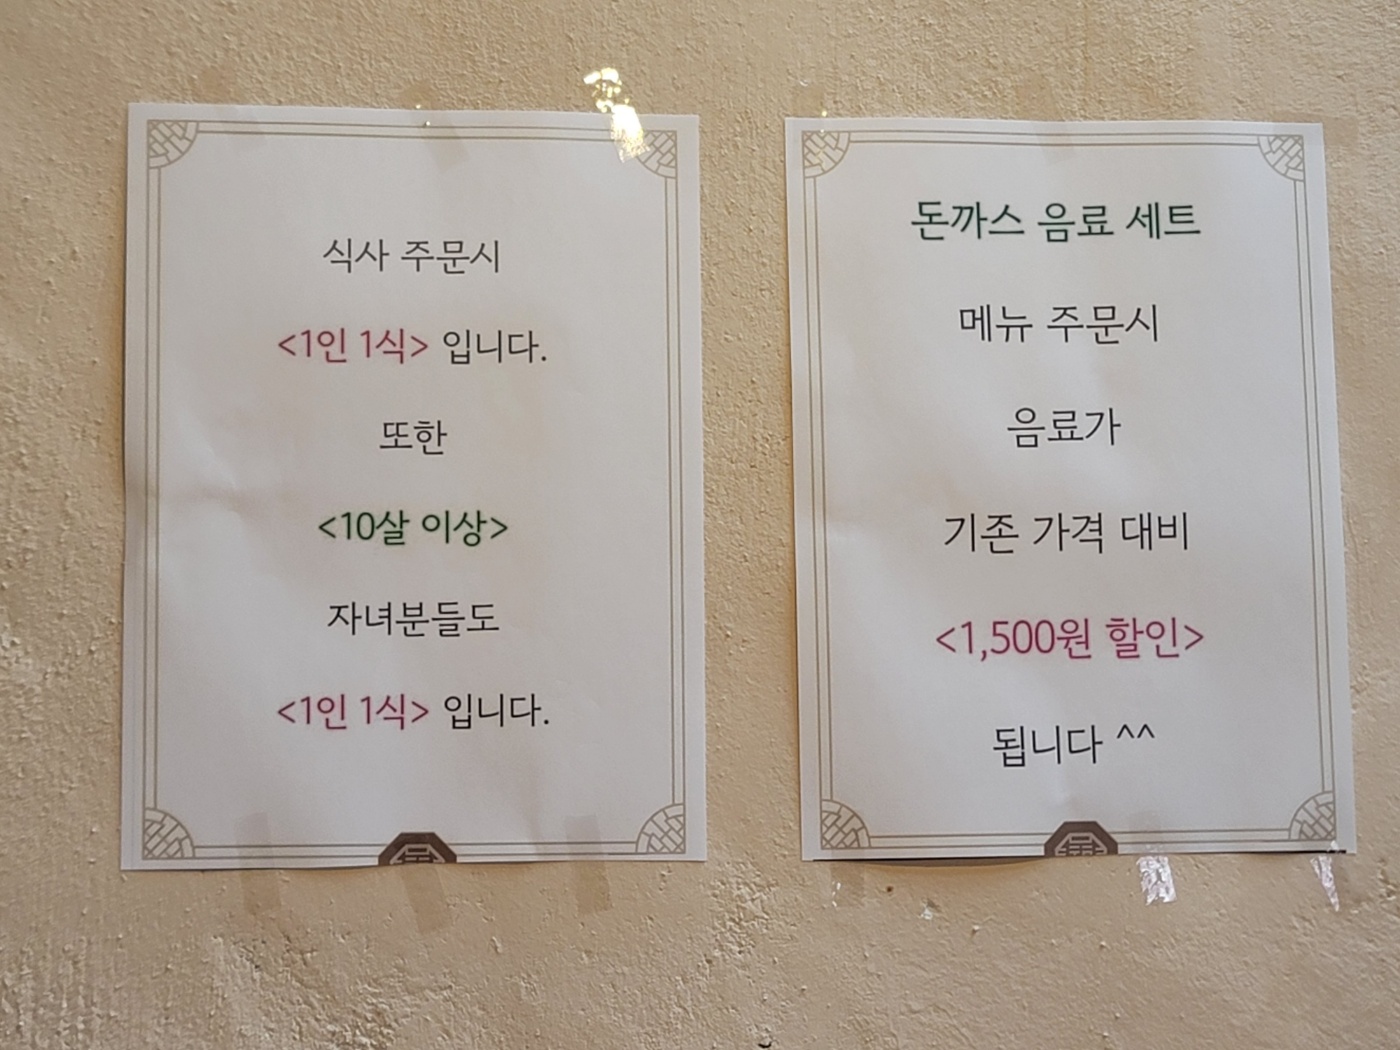 식사 주문시
<1인 1식> 입니다.
또한
<10살 이상>
자녀분들도
<1인 1식> 입니다.
돈까스 음료 세트
메뉴 주문시
음료가
기존 가격 대비
<1,500원 할인>
됩니다 ^^